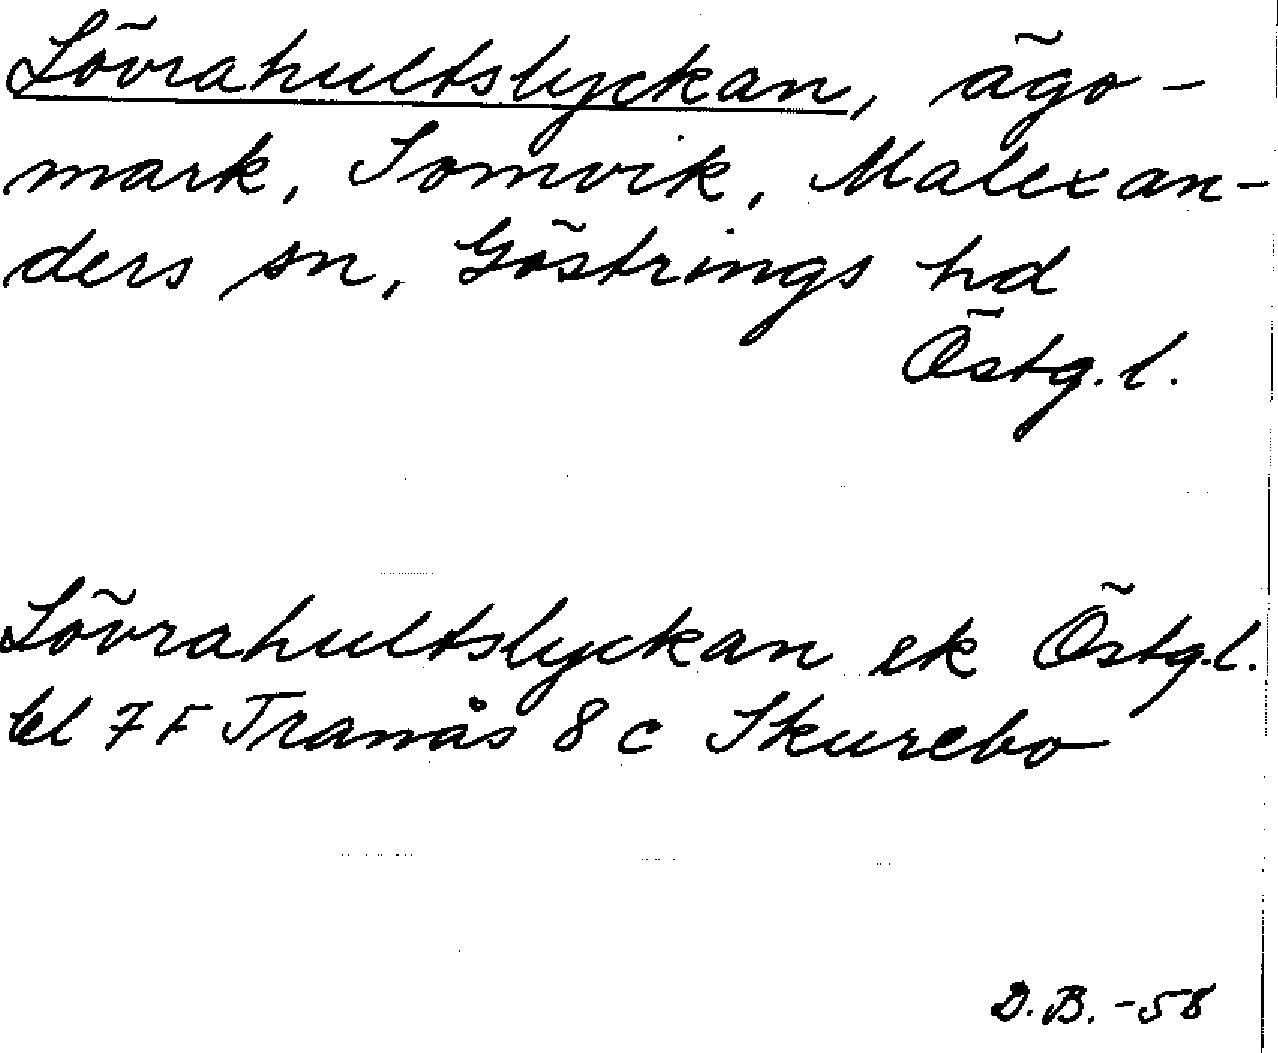 Lövrahultslyckan, ägo-
mark, Somvik, Malexan-
ders sn, Göstrings hd
Östg. l.
Lövrahultslyckan ek Östg. l.
bl 7 F Tranås 8 c Skurebo
D. B. -58